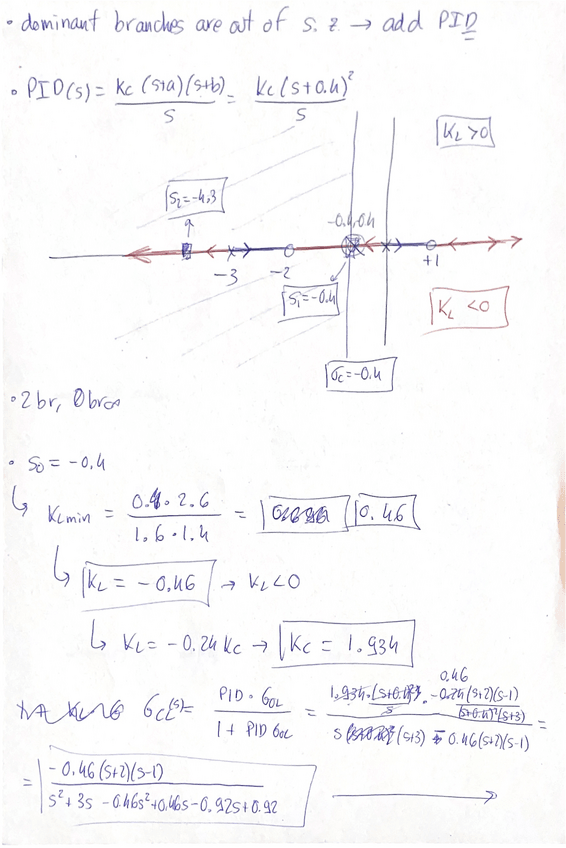 • dominant branches are out of s. z. → add PID
• PID(s) = Kc (s+a)(s+b) / s = Kc (s+0.4)² / s
KL > 0
S2 = -4,3
-0.4, 0.4
-3 -2 +1
S1 = -0.4
KL < 0
σc = -0.4
• 2 br, 0 br∞
• s0 = -0.4
↳ KLmin = 0.4 · 2.6 / 1.6 · 1.4 = 0.46
↳ KL = -0.46 → KL < 0
↳ KL = -0.24 Kc → Kc = 1.934
0.46
GCL(s) = PID · GOL / 1 + PID GOL = 1.934 · (s+0.4)² / s · -0.24(s+2)(s-1) / (s+0.4)²(s+3) / s (s+3) - 0.46(s+2)(s-1) =
= -0.46(s+2)(s-1) / s² + 3s - 0.46s² + 0.46s - 0.92s + 0.92